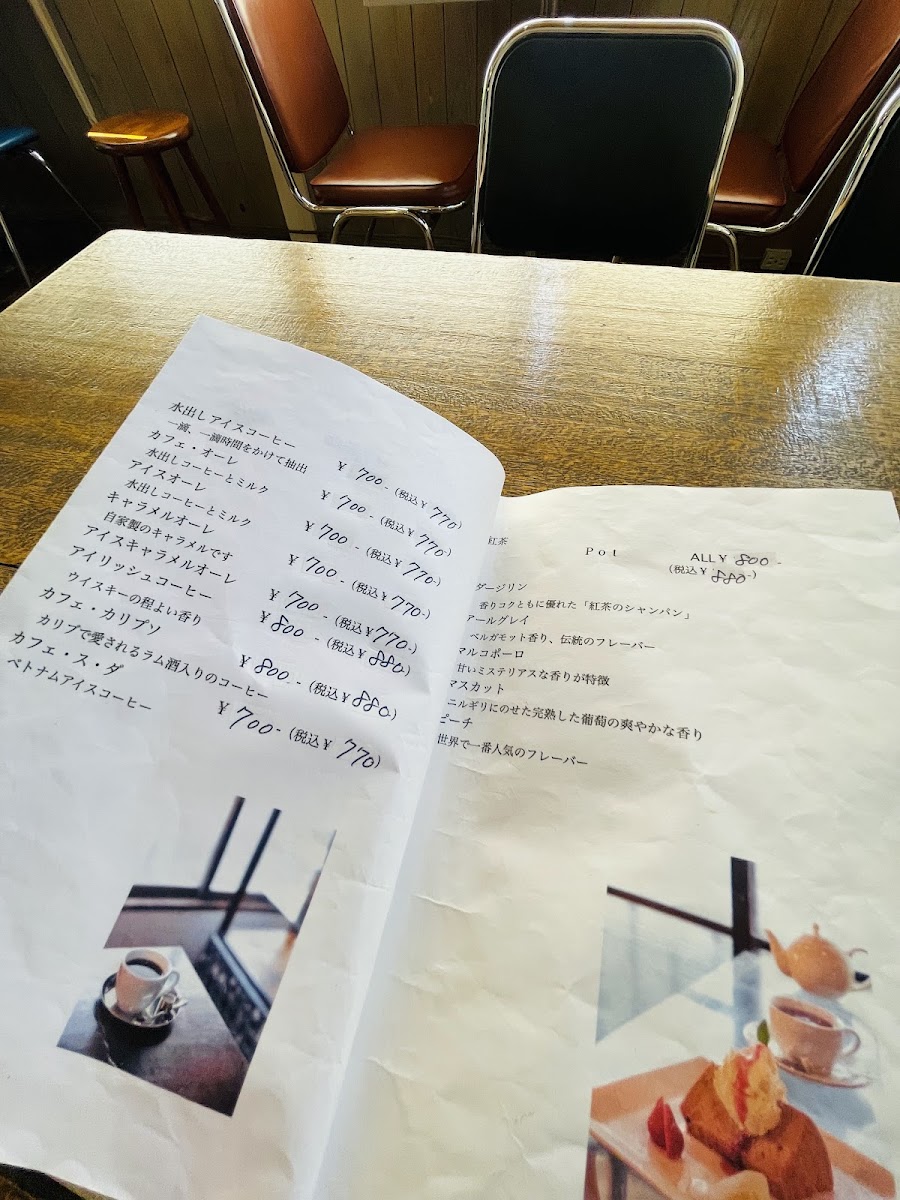 水出しアイスコーヒー ¥700-(税込¥770)
一滴、一滴時間をかけて抽出
カフェ・オーレ ¥700-(税込¥770)
水出しコーヒーとミルク
アイスオーレ ¥700-(税込¥770-)
水出しコーヒーとミルク
キャラメルオーレ ¥700-(税込¥770-)
自家製のキャラメルです
アイスキャラメルオーレ ¥700-(税込¥770-)
アイリッシュコーヒー ¥800-(税込¥880)
ウイスキーの程よい香り
カフェ・カリプソ ¥800-(税込¥880-)
カリブで愛されるラム酒入りのコーヒー
カフェ・ス・ダ ¥700-(税込¥770)
ベトナムアイスコーヒー
紅茶
Pot ALL¥800-
(税込¥880-)
ダージリン
香りコクともに優れた「紅茶のシャンパン」
アールグレイ
ベルガモット香り、伝統のフレーバー
マルコポーロ
甘いミステリアスな香りが特徴
マスカット
ニルギリにのせた完熟した葡萄の爽やかな香り
ピーチ
世界で一番人気のフレーバー